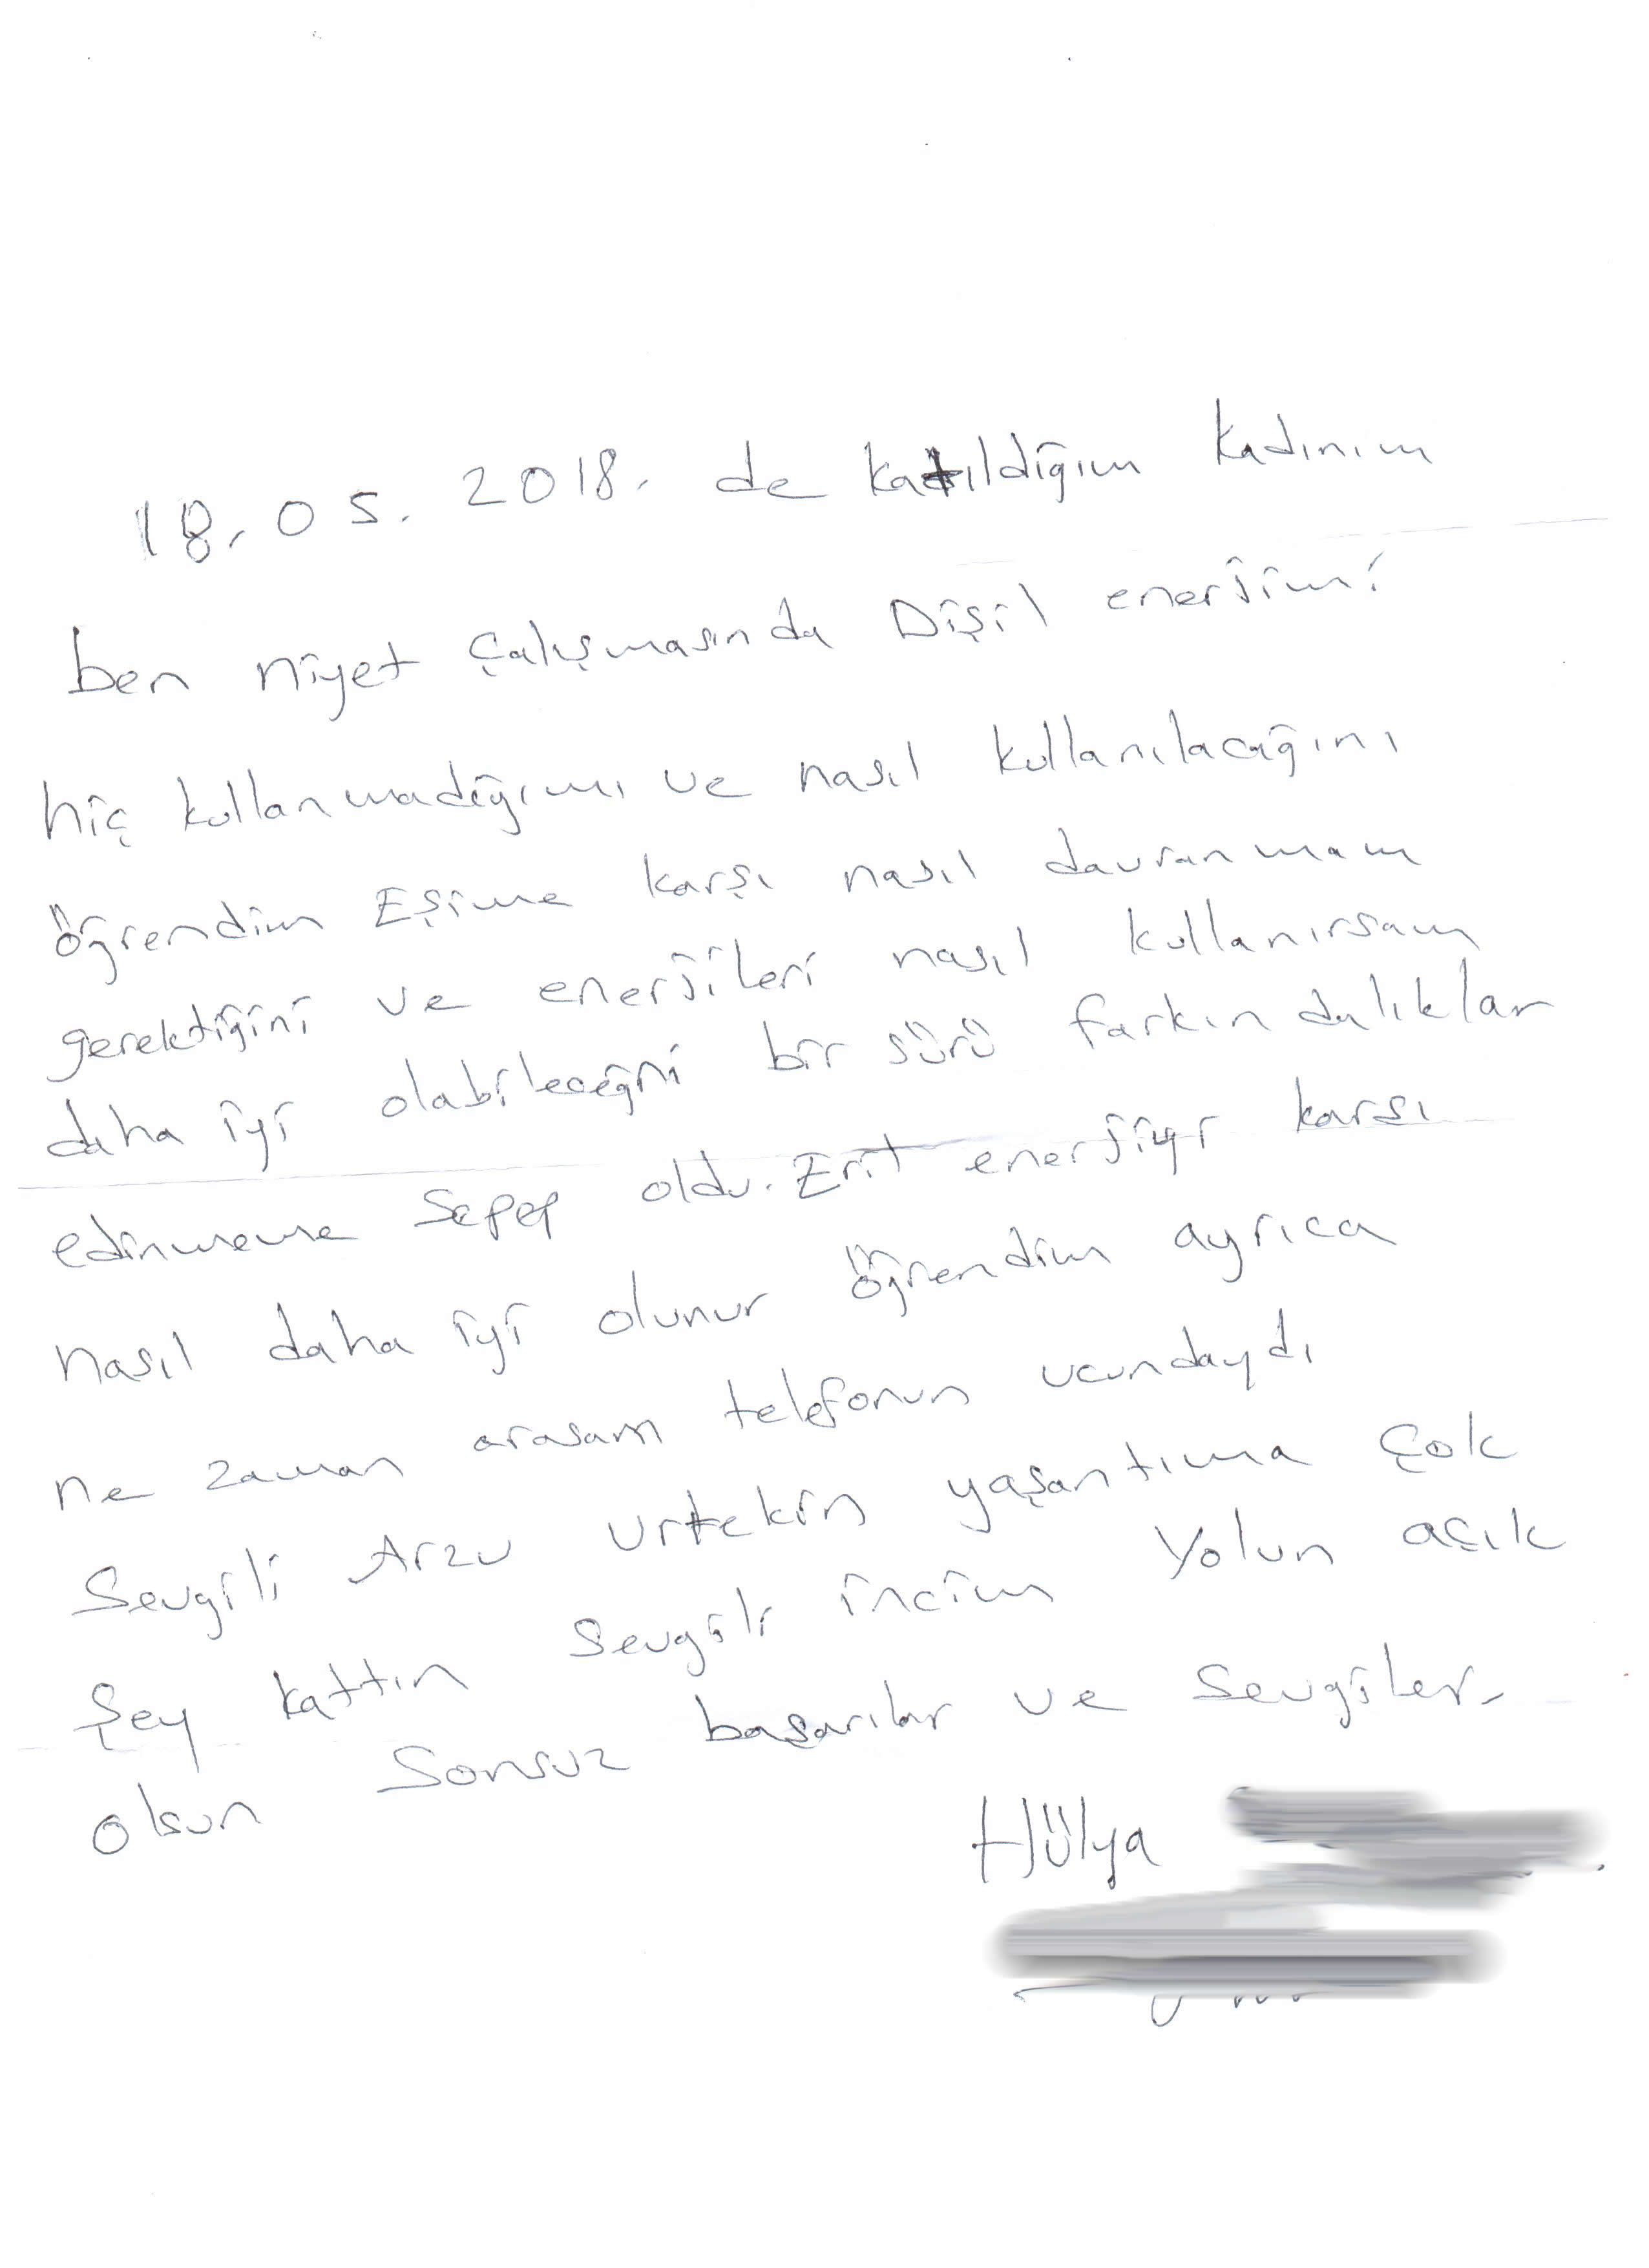 18.05.2018. de katıldığım kadınım
ben niyet çalışmasında Dişil enerjimi
hiç kullanmadığımı ve nasıl kullanılacağını
öğrendim Eşime karşı nasıl davranmam
gerektiğini ve enerjileri nasıl kullanırsam
daha iyi olabileceğni bir sürü farkındalıklar
edinmeme Sepep oldu. Erit enerjiyi karşı
nasıl daha iyi olunur öğrendim ayrıca
ne zaman arasam telefonun ucundaydı
Sevgili Arzu Urtekin yaşantıma çok
şey kattın Sevgili incim Yolun açık
olsun Sonsuz başarılar ve Sevgiler.
Hülya